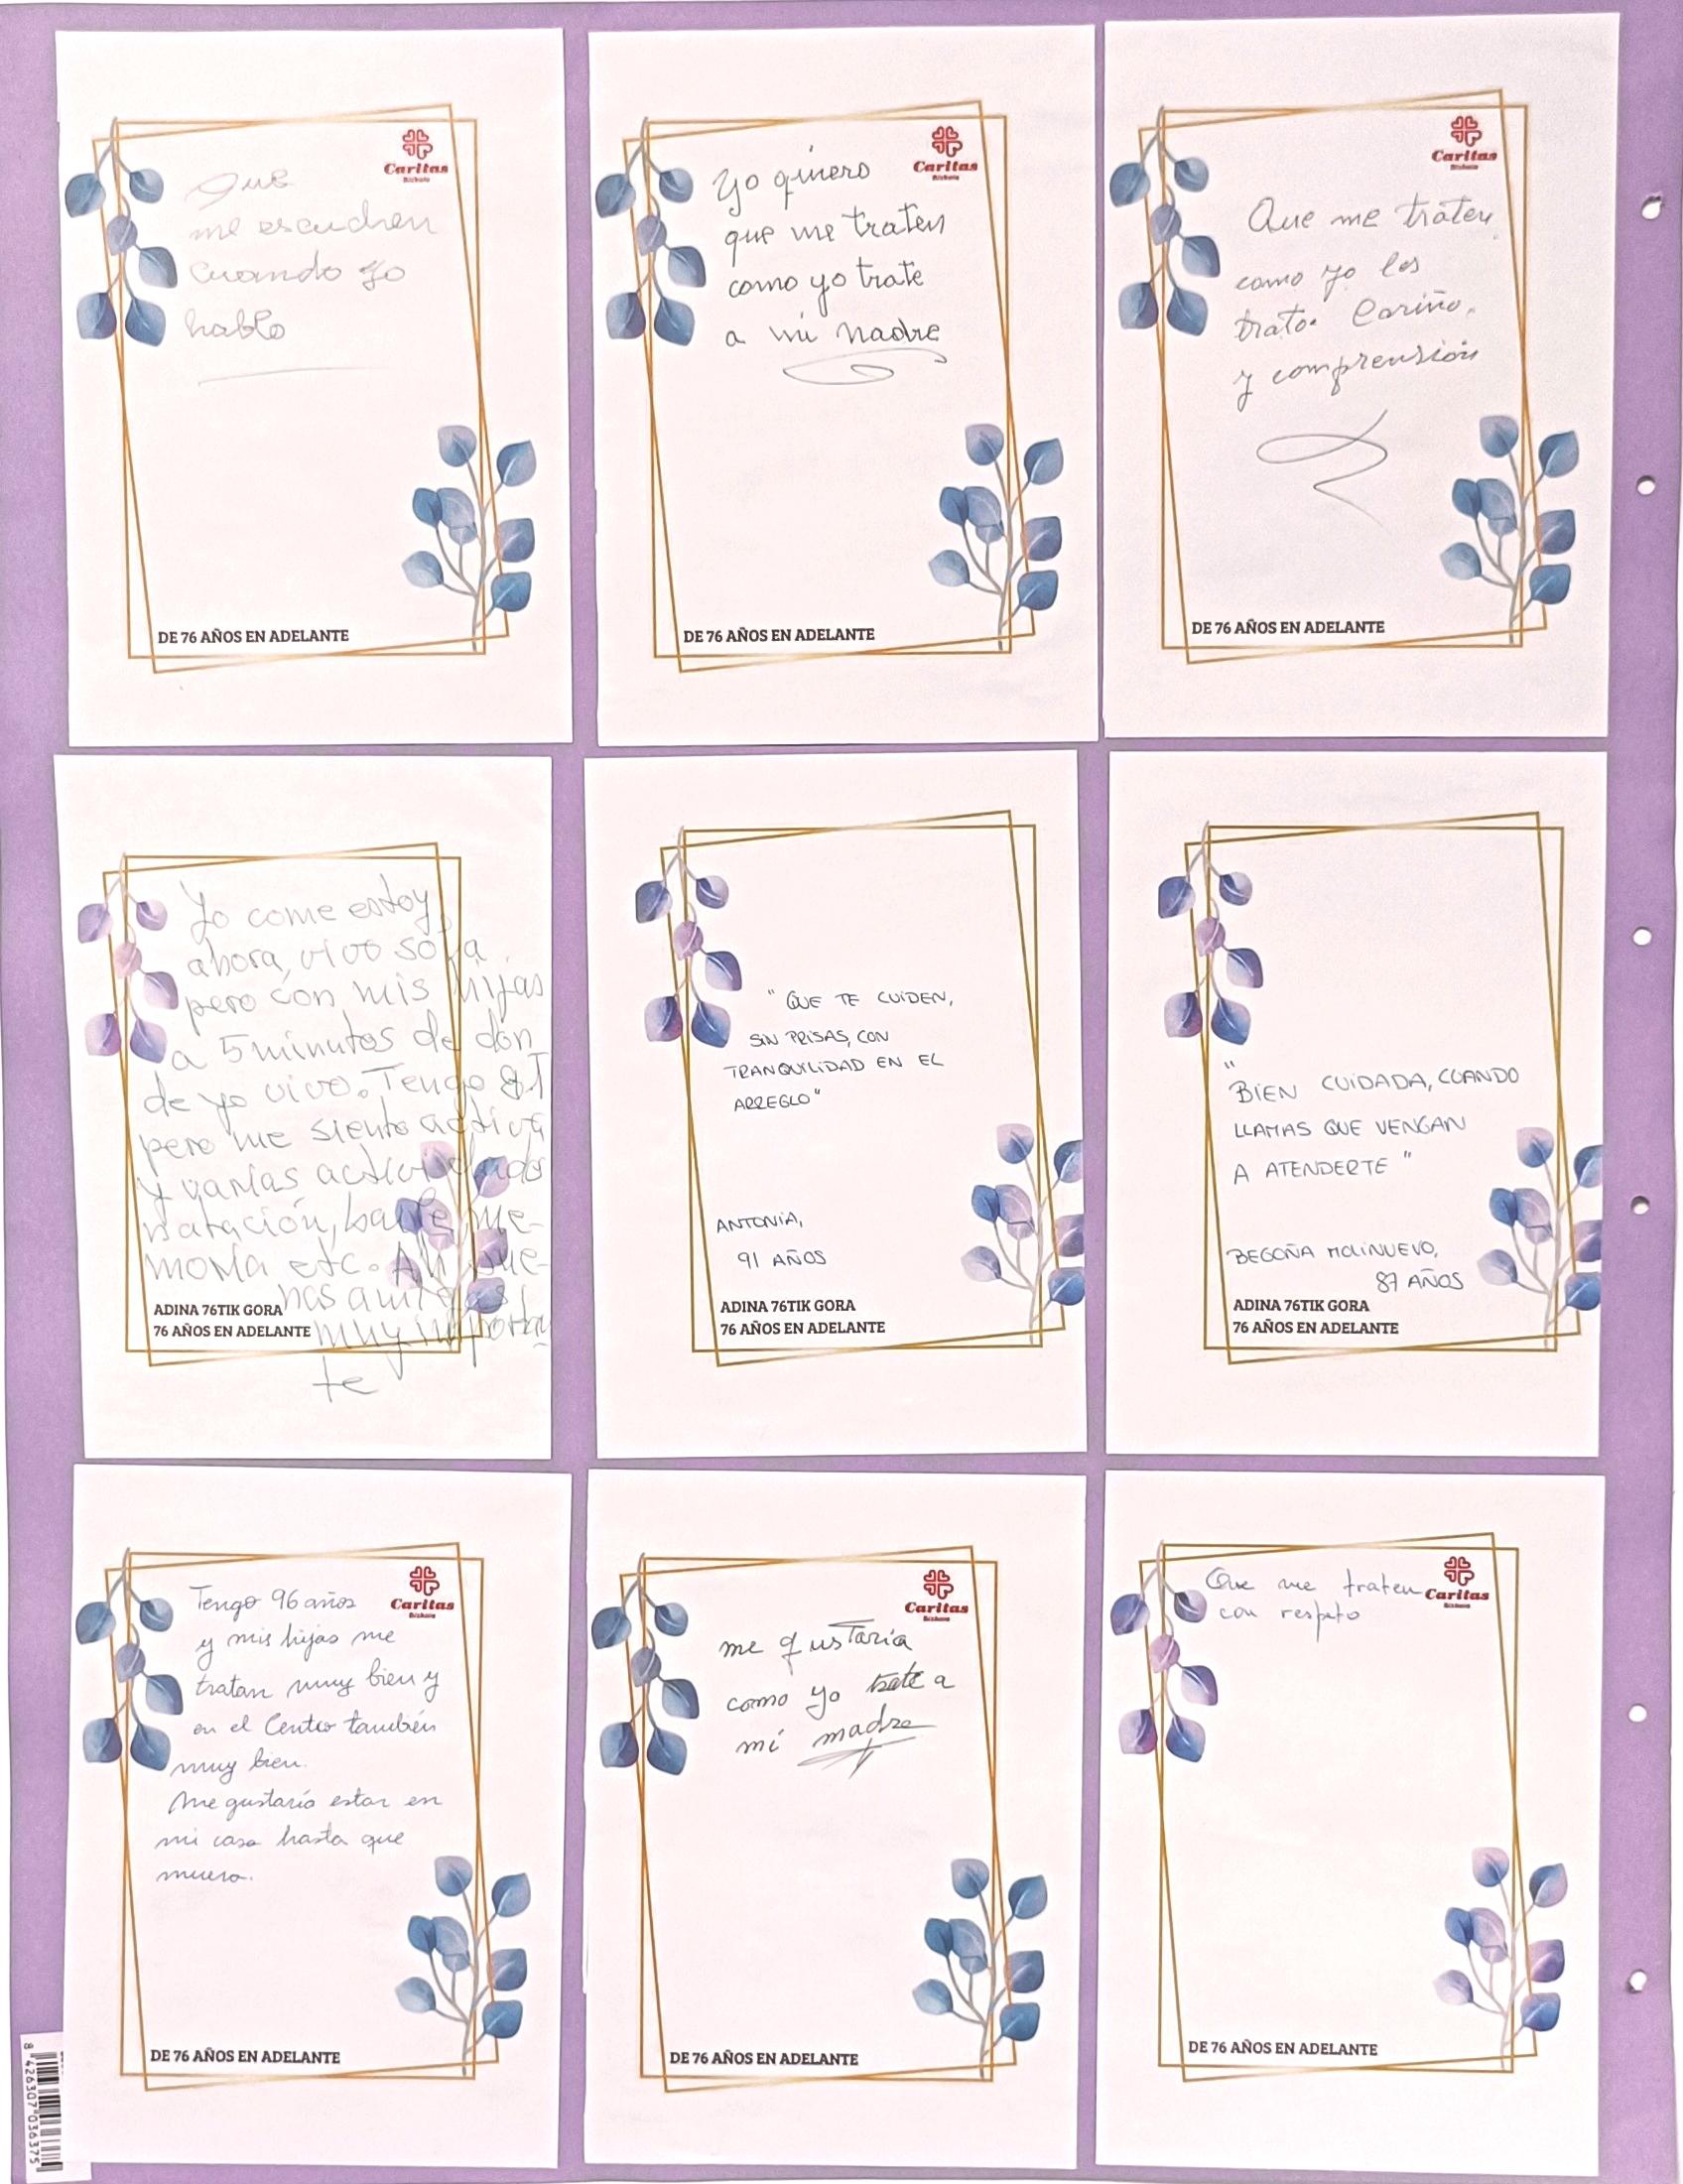 Caritas
Bizkaia
Que
me escuchen
cuando yo
hablo
DE 76 AÑOS EN ADELANTE
Caritas
Bizkaia
Yo quiero
que me traten
como yo trate
a mi madre
DE 76 AÑOS EN ADELANTE
Caritas
Bizkaia
Que me traten
como yo los
trato. Cariño,
y comprensión
DE 76 AÑOS EN ADELANTE
Yo como estoy
ahora, vivo sola
pero con mis hijas
a 5 minutos de don
de yo vivo. Tengo
pero me siento activa
y varias actividades
natación, baile, me-
moria etc. Ahí bue-
nas amigas
muy importan
te
ADINA 76TIK GORA
76 AÑOS EN ADELANTE
"QUE TE CUIDEN,
SIN PRISAS, CON
TRANQUILIDAD EN EL
ARREGLO"
ANTONIA,
91 AÑOS
ADINA 76TIK GORA
76 AÑOS EN ADELANTE
"BIEN CUIDADA, CUANDO
LLAMAS QUE VENGAN
A ATENDERTE"
BEGOÑA MOLINUEVO,
87 AÑOS
ADINA 76TIK GORA
76 AÑOS EN ADELANTE
Caritas
Bizkaia
Tengo 96 años
y mis hijas me
tratan muy bien y
en el Centro también
muy bien.
Me gustaría estar en
mi casa hasta que
muera.
DE 76 AÑOS EN ADELANTE
Caritas
Bizkaia
me gustaría
como yo trate a
mi madre
DE 76 AÑOS EN ADELANTE
Caritas
Bizkaia
Que me traten
con respeto
DE 76 AÑOS EN ADELANTE
8 426307 036375